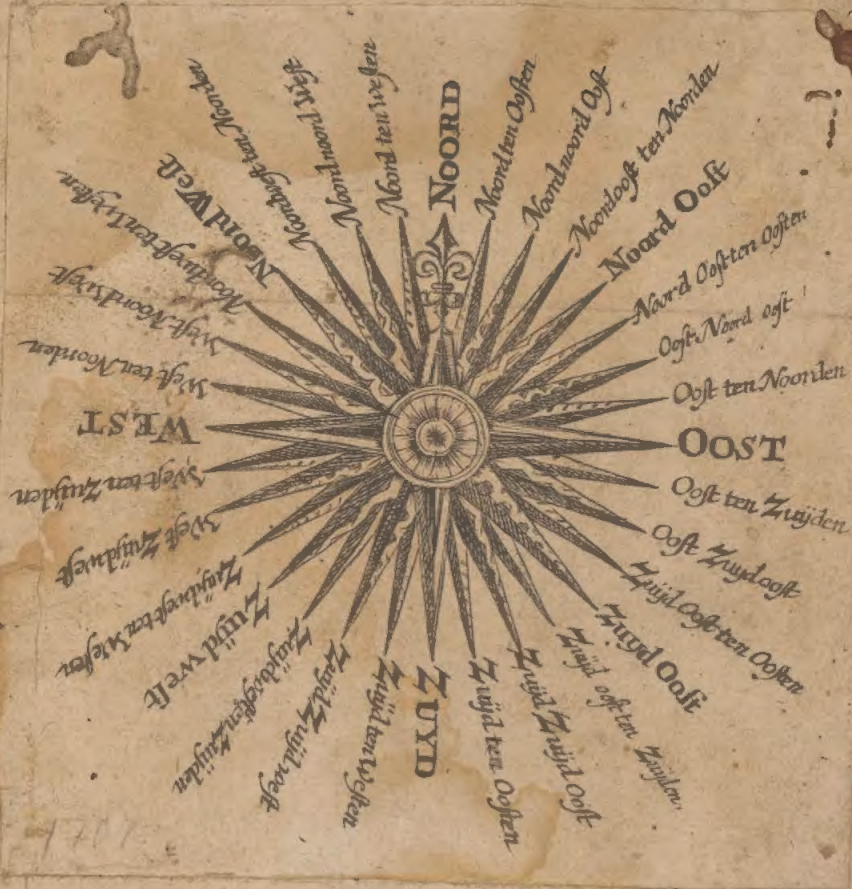 NOORD
Noord ten Oosten
Noord noord Oost
Noordoost ten Noorden
Noord Oost
Noord Oost ten Oosten
Oost Noord oost
Oost ten Noorden
OOST
Oost ten Zuijden
Oost Zuijdoost
Zuijd Oost ten Oosten
Zuijd Oost
Zuijd oost ten Zuijden,
Zuijd Zuijd Oost
Zuijd ten Oosten
ZUYD
Zuijd ten Westen
Zuijd Zuijd west
Zuijdwest ten Zuijden
Zuijd west
Zuijdwest ten Westen
West Zuijdwest
West ten Zuijden
WEST
West ten Noorden
West Noord West
Noordwest ten Westen
Noord West
Noordwest ten Noorden
Noord noord West
Noord ten Westen